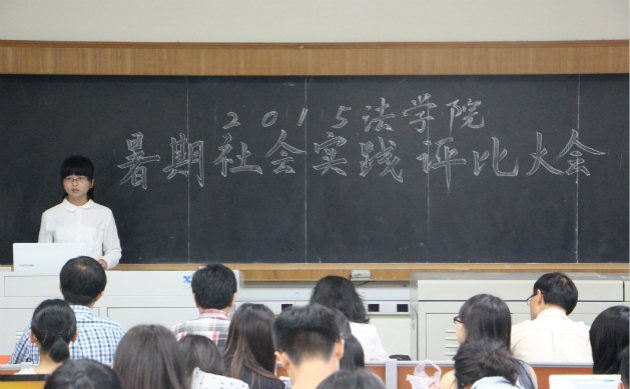 2015法学院
暑期社会实践评比大会